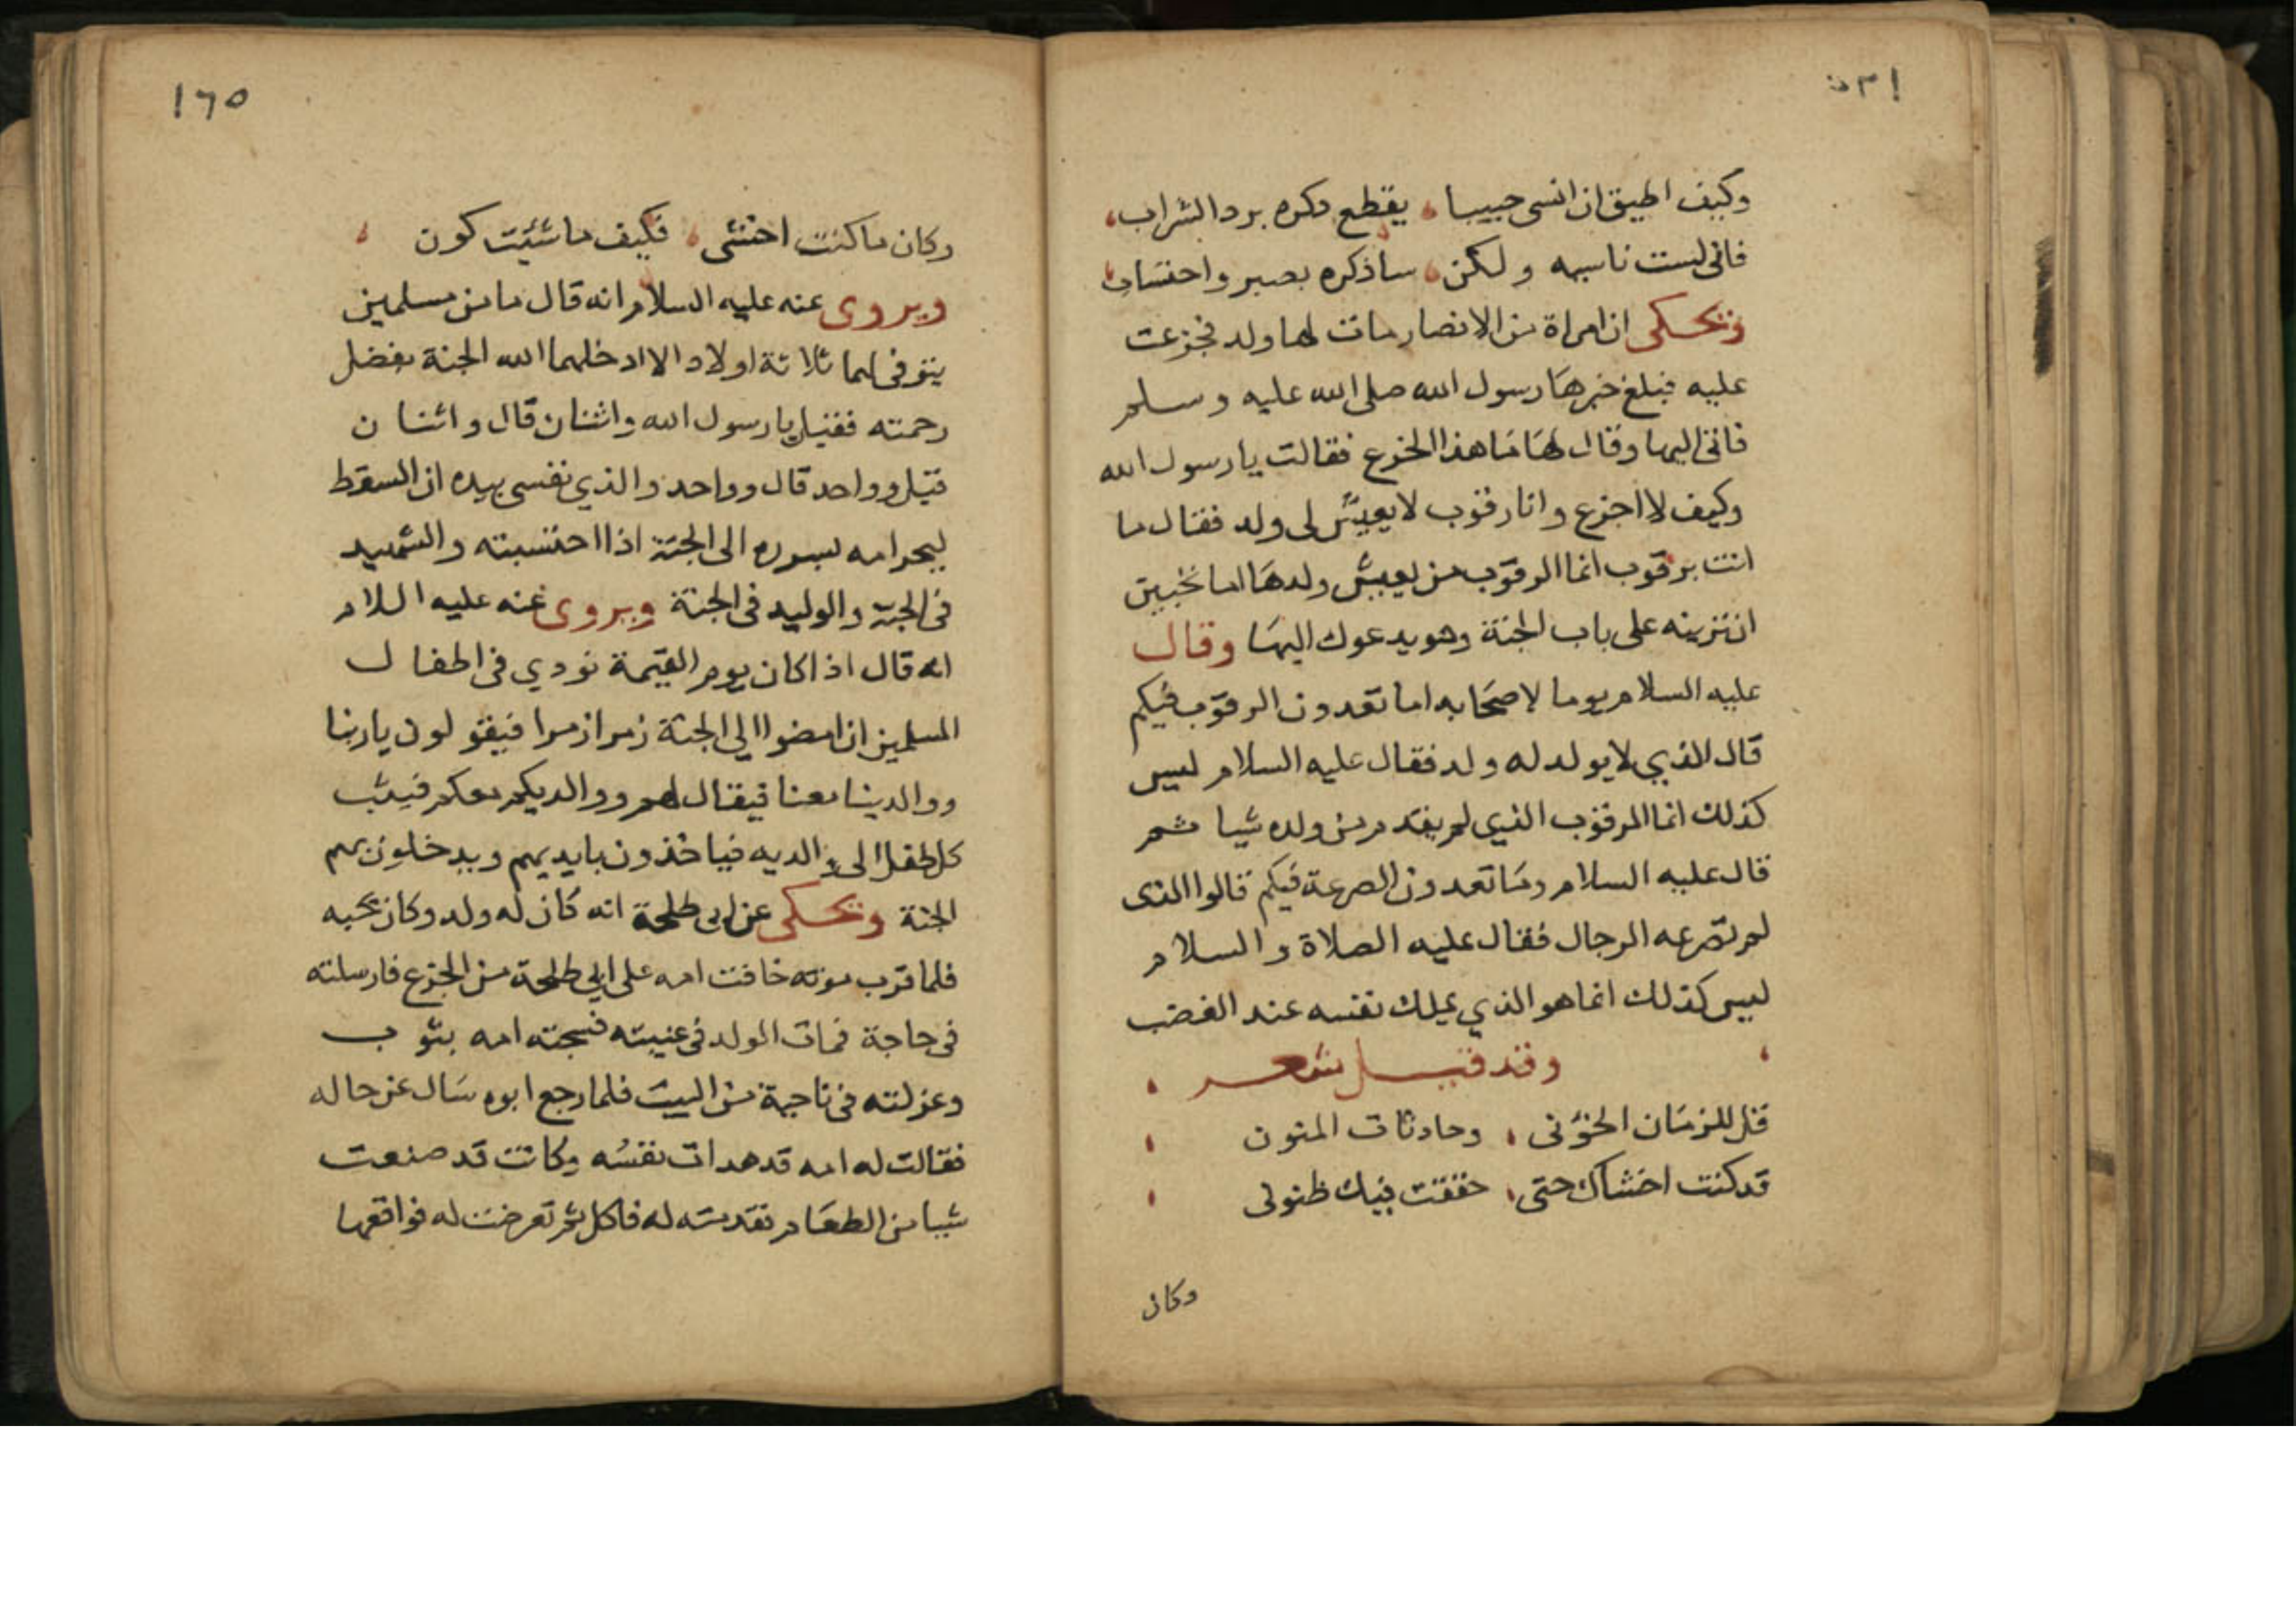 وكيف اطيق ان انسى حبيبا ، يقطع ذكره برد الشراب ،
فاني لست ناسيه ولكن ، ساذكره بصبر واحتساب ،
ويحكى ان امراة من الانصار مات لها ولد فجزعت
عليه فبلغ خبرها رسول الله صلى الله عليه وسلم
فاتى اليها وقال لها ما هذا الجزع فقالت يا رسول الله
وكيف لا اجزع وانا رقوب لا يعيش لى ولد فقال ما
انت برقوب انما الرقوب من يعيش ولدها اما تحبين
ان ترينه على باب الجنة وهو يدعوك اليها وقال
عليه السلام يوما لاصحابه اما تعدون الرقوب فيكم
قال الذي لا يولد له ولد فقال عليه السلام ليس
كذلك انما الرقوب الذي لم يقدم من ولده شيا ثم
قال عليه السلام وما تعدون الصرعة فيكم قالوا الذى
لم تصرعه الرجال فقال عليه الصلاة والسلام
ليس كذلك انما هو الذي يملك نفسه عند الغضب
، وقد قيل شعر ،
قل للزمان الخؤنى ، وحادثات المنون ،
قد كنت اخشاك حتى ، حققت فيك ظنونى ،
وكان
١٦٥
وكان ما كنت اخشى ، فكيف ما شئت كون ،
ويروى عنه عليه السلام انه قال ما من مسلمين
يتوفى لهما ثلاثة اولاد الا ادخلهما الله الجنة بفضل
رحمته فقيل يا رسول الله واثنان قال واثنان
قيل وواحد قال وواحد والذي نفسى بيده ان السقط
ليجر امه بسرره الى الجنة اذا احتسبته والشهيد
فى الجنة والوليد فى الجنة ويروى عنه عليه السلام
انه قال اذا كان يوم القيمة نودي فى اطفال
المسلمين ان امضوا الي الجنة زمرا زمرا فيقولون يا ربنا
ووالدينا معنا فيقال لهم ووالديكم معكم فيثب
كل طفل الى والديه فياخذون بايديهم ويدخلون بهم
الجنة ويحكى عن ابى طلحة انه كان له ولد وكان يحبه
فلما قرب موته خافت امه على ابي طلحة من الجزع فارسلته
فى حاجة فمات الولد فى غيبته فسجته امه بثوب
وعزلته فى ناحية من البيت فلما رجع ابوه سال عن حاله
فقالت له امه قد هدات نفسه وكانت قد صنعت
شيا من الطعام فقدمته له فاكل ثم تعرضت له فواقعها